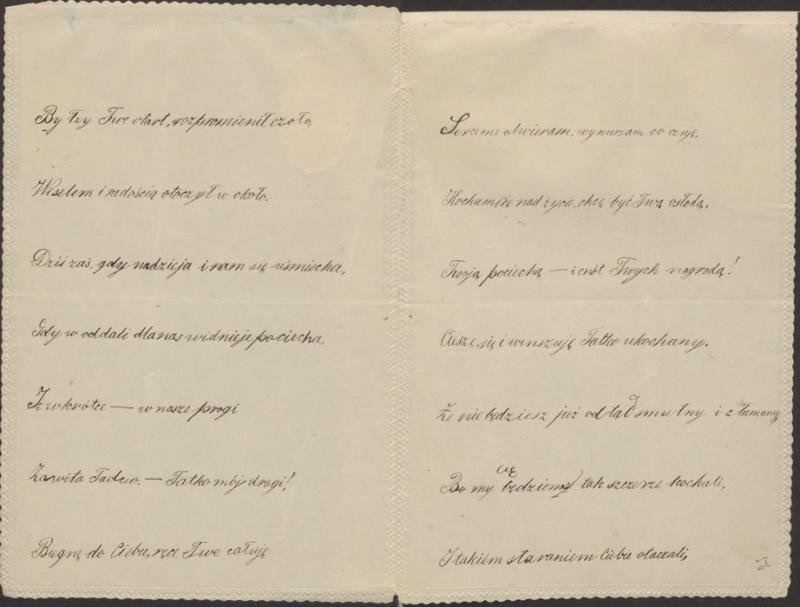 By łzy Twe otarł, rozpromienił czoło,
Weselem i radością otoczył w około.
Dziś zaś, gdy nadzieja i nam się uśmiecha,
Gdy w oddali dla nas widnieje pociecha,
Iż wkrótce — w nasze progi
Zawita Tadzio. — Tatko mój drogi!
Biegnę do Ciebie, ręce Twe całuję
Serce me otwieram, wynurzam co czuję,
Kocham Cię nad życie, chcę być Twą osłodą,
Twoją pociechą — i cnót Twych nagrodą!
Cieszę się i winszuję Tatko ukochany.
Że nie będziesz już odtąd smutny i złamany
Bo my Cię będziemy tak szczerze kochali,
I takiem staraniem Ciebie otaczali,